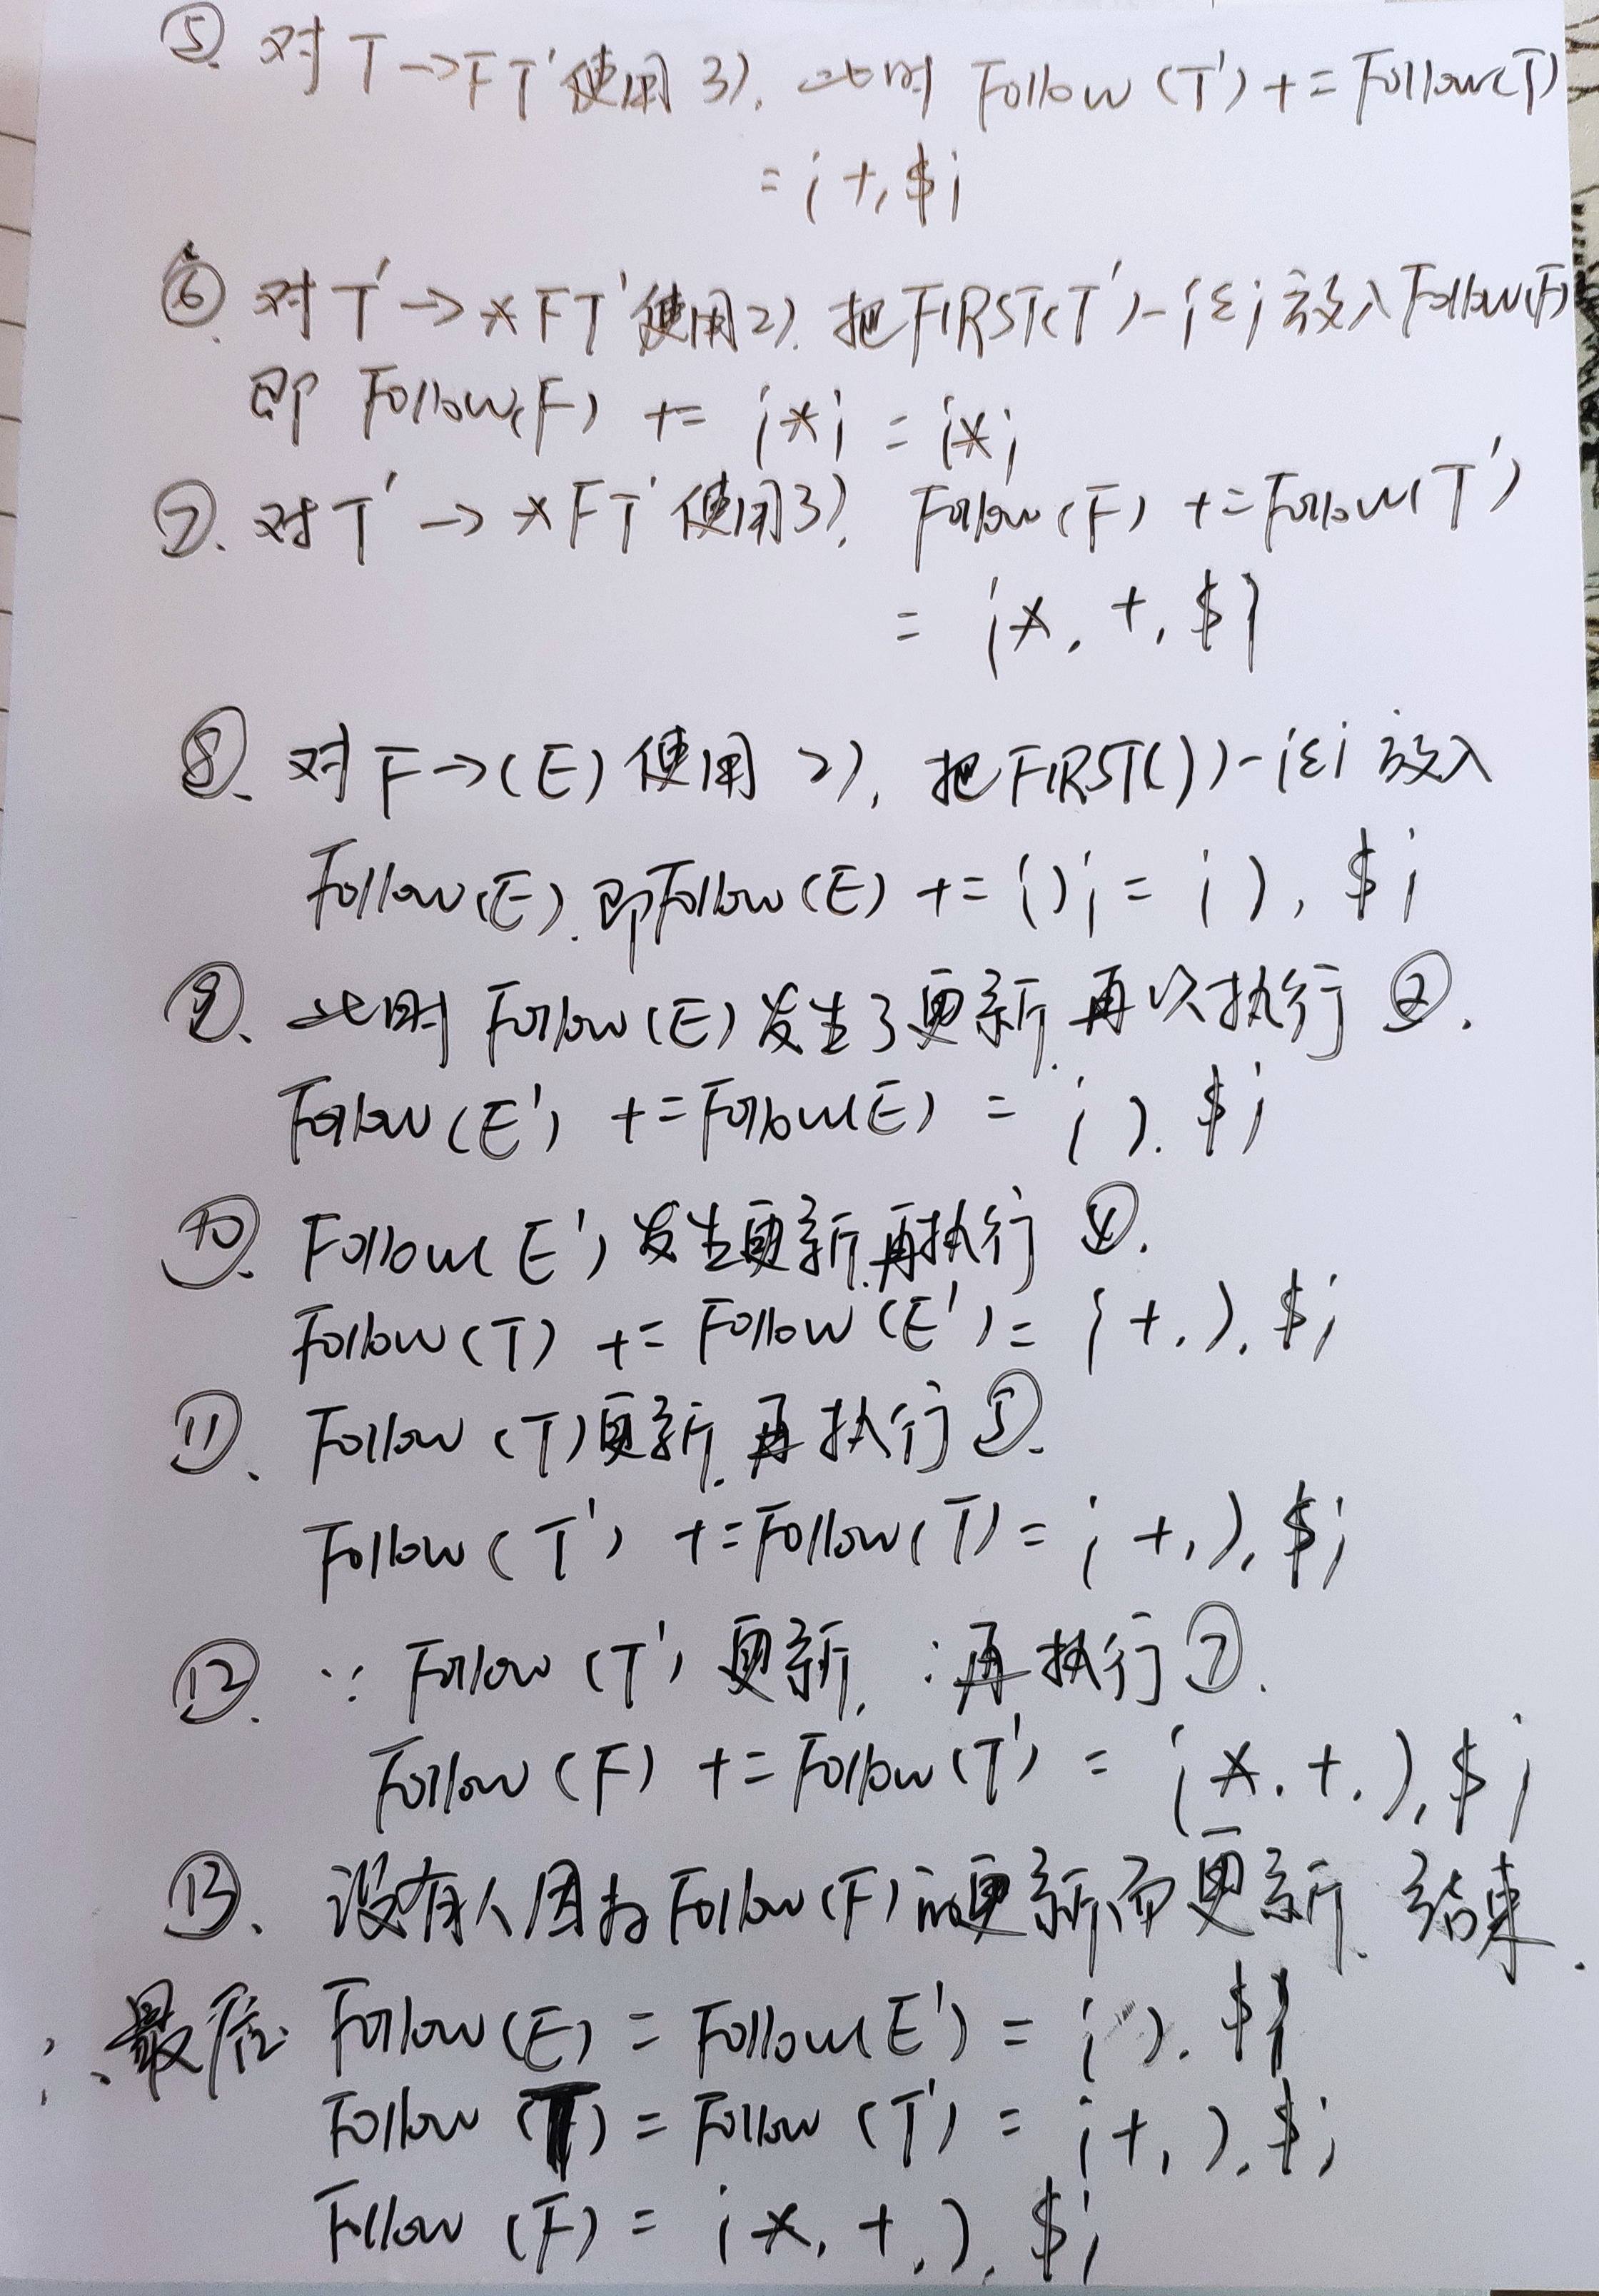 ⑤. 对 T→FT' 使用 3). 此时 Follow (T') += Follow(T)
= {+, $}
⑥. 对 T' → *FT' 使用2). 把FIRST(T')-{ε}放入Follow(F)
即 Follow(F) += {*} = {*}
⑦. 对 T' → *FT' 使用3). Follow(F) += Follow(T')
= {*, +, $}
⑧. 对 F→(E) 使用 2), 把FIRST())-{ε} 放入
Follow(E). 即Follow(E) += {)} = { ), $}
⑨. 此时 Follow(E)发生了更新. 再次执行 ②.
Follow(E') += Follow(E) = { ). $}
⑩. Follow(E')发生更新.再执行 ④.
Follow(T) += Follow(E') = {+, ), $}
⑪. Follow(T)更新. 再执行⑤.
Follow(T') += Follow(T) = {+, ), $}
⑫. ∵ Follow(T') 更新, ∴再执行⑦.
Follow(F) += Follow(T') = {*, +, ), $}
⑬. 没有人因为Follow(F)的更新而更新. 结束.
∴ 最后 Follow(E) = Follow(E') = { ). $}
Follow (T) = Follow (T') = {+, ), $}
Follow (F) = {*, +, ), $}